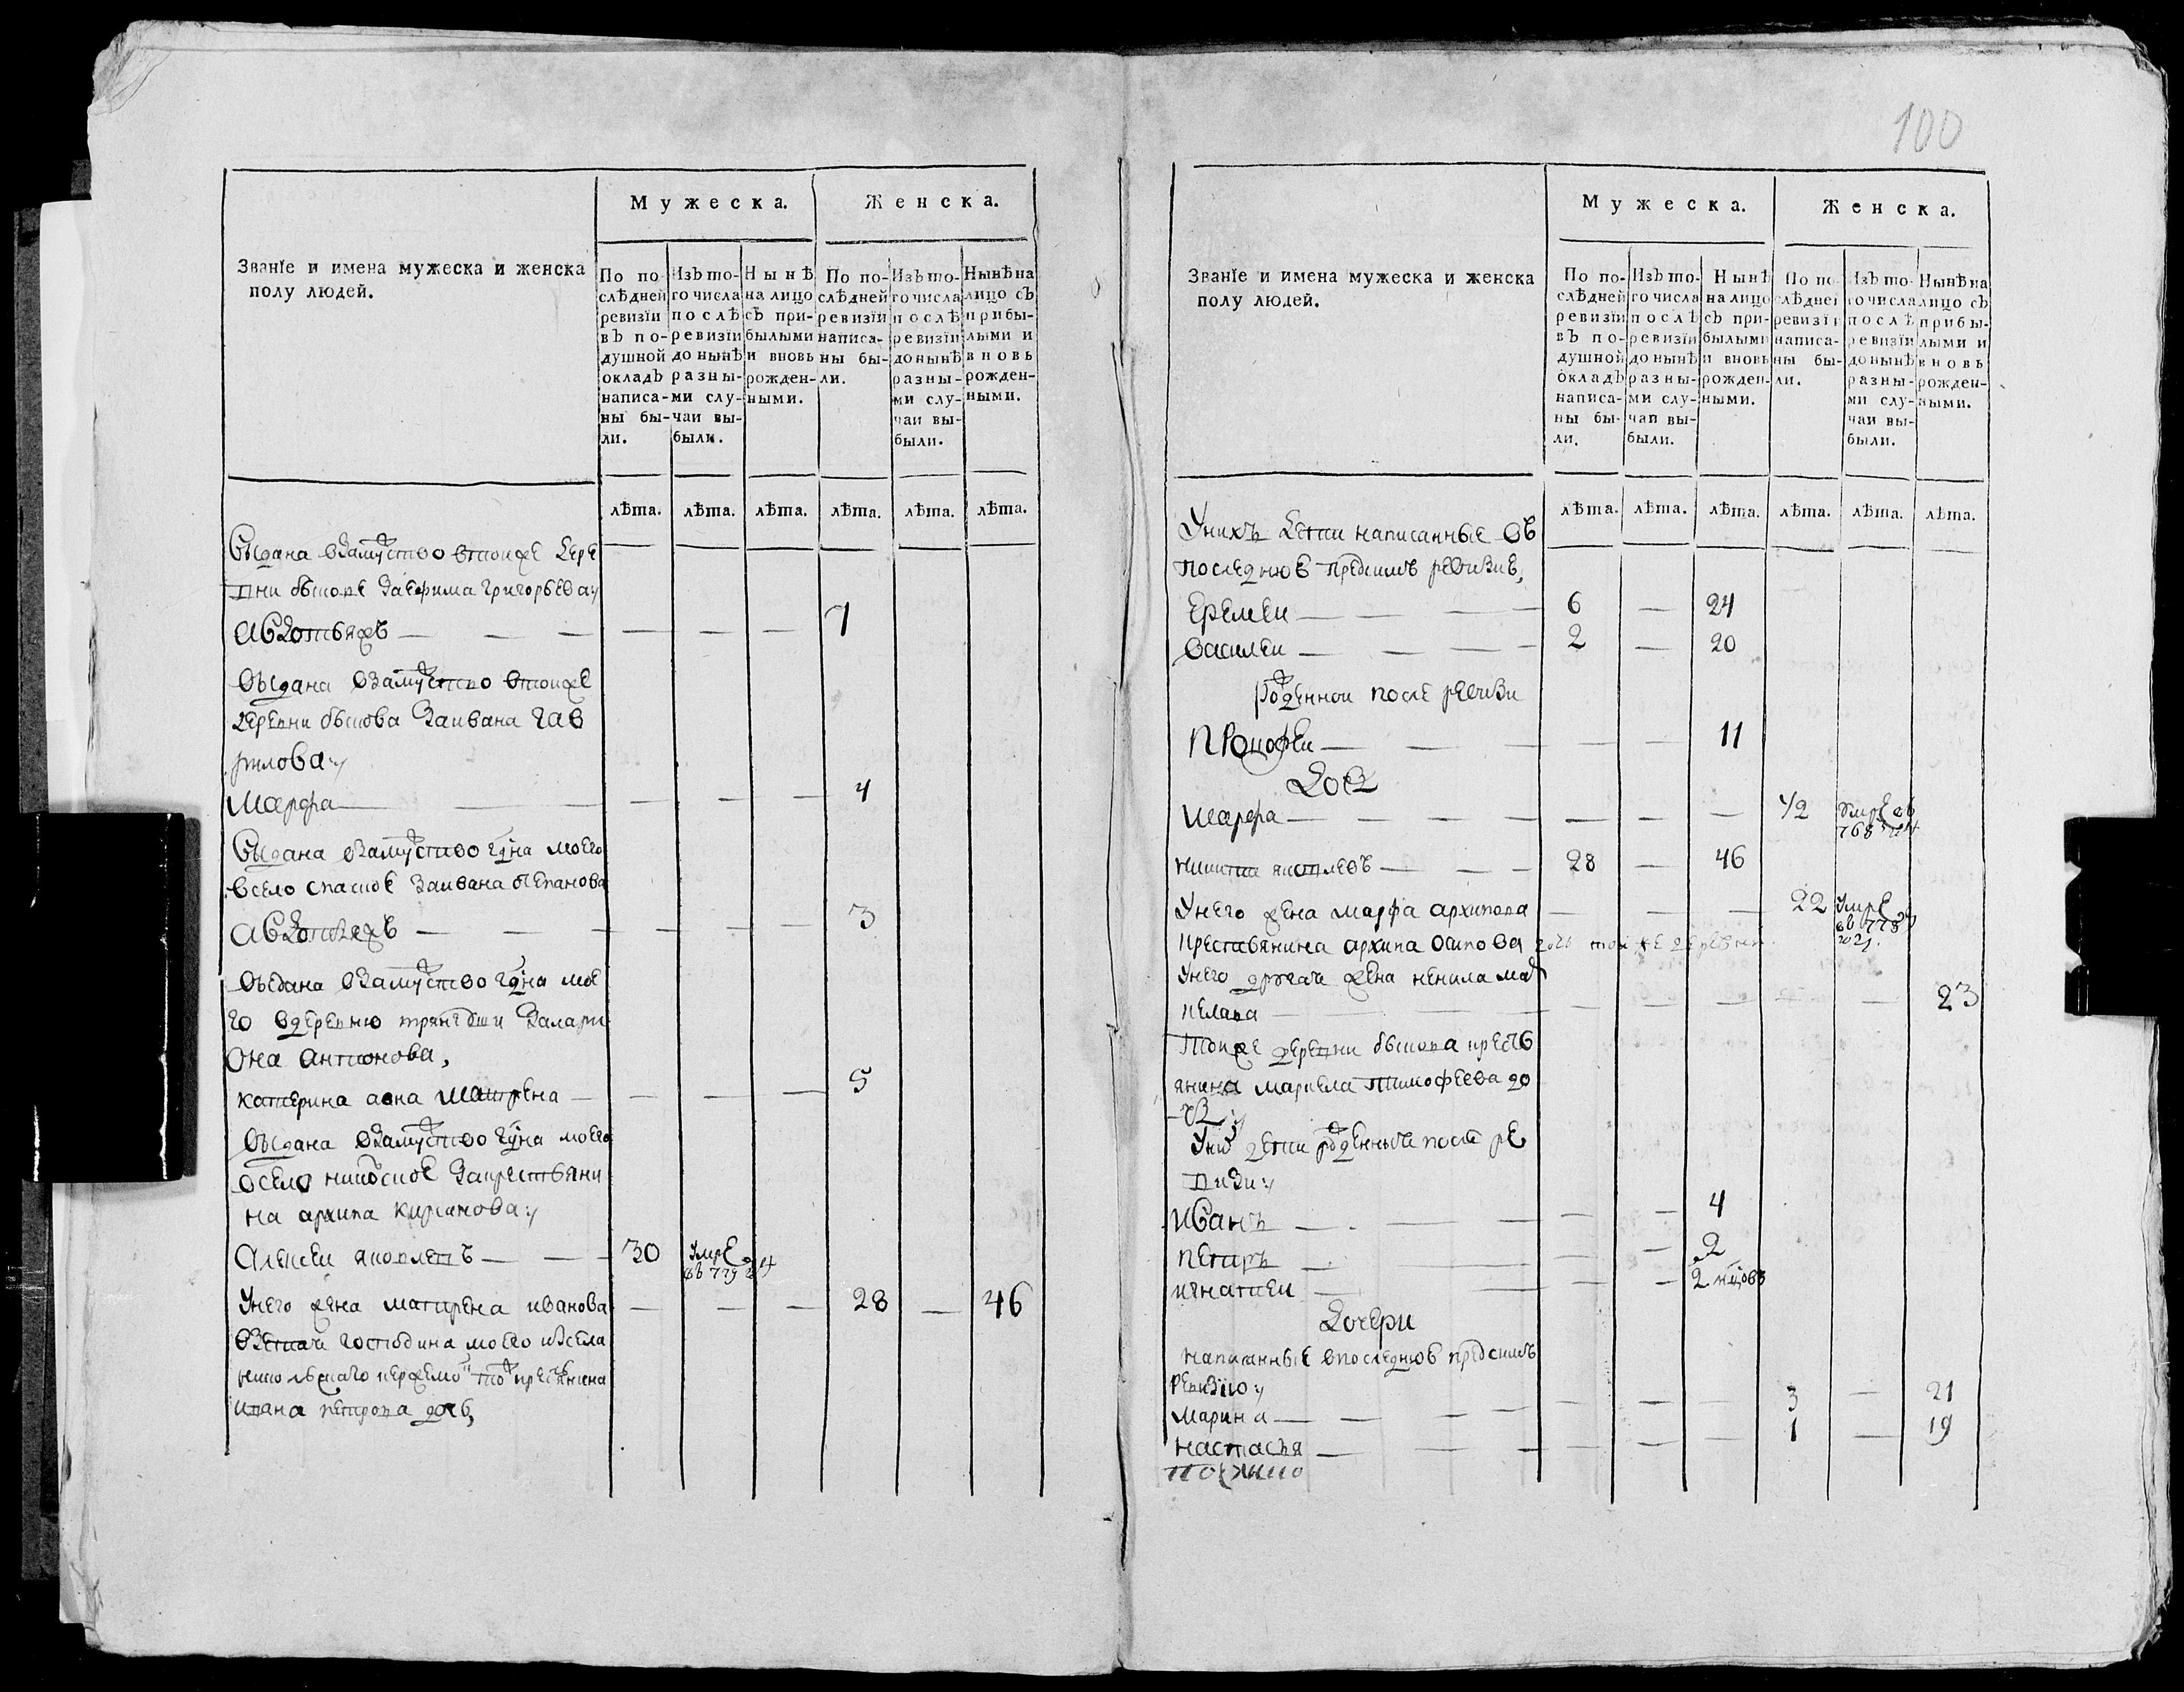 100
Мужеска. Женска.
Званїе и имена мужеска и женска
полу людей.
По по-
слѣдней
ревизїи
въ по-
душной
окладъ
написа-
ны бы-
ли.
Изъ то-
го числа
послѣ
ревизїи
до нынѣ
разны-
ми слу-
чаи вы-
были.
Нынѣ
на лицо
съ при-
былыми
и вновь
рожден-
ными.
По по-
слѣдней
ревизїи
написа-
ны бы-
ли.
Изъ то-
го числа
послѣ
ревизїи
до нынѣ
разны-
ми слу-
чаи вы-
были.
Нынѣ на
лицо съ
прибы-
лыми и
вновь
рожден-
ными.
лѣта. лѣта. лѣта. лѣта. лѣта. лѣта.
Выдана взамуство втоиже дере
вни быковe заефима григорьева
авдотья — — — — — — 7
выдана взамуство втоиже
деревни быкова заивана гав
рилова
марфа — — — — — — 4
выдана взамуство гдна моего
всело спаское заивана степанова
авдотья — — — — — 3
выдана взамуство гдна мое
го вдеревню
она антонова,
катерина ана матрена — — — — 5
выдана взамуство гдна моего
всело закрестьяни
на архипа
алексеи яковлевъ — — 30 умре в 779 г
унего жена матрена иванова — — — 28 — 46
взетая господина моего изсела
никольскаго крестьянина
ивана петрова дочь,
Мужеска. Женска.
Званїе и имена мужеска и женска
полу людей.
По по-
слѣдней
ревизїи
въ по-
душной
окладъ
написа-
ны бы-
ли.
Изъ то-
го числа
послѣ
ревизїи
до нынѣ
разны-
ми слу-
чаи вы-
были.
Нынѣ
на лицо
съ при-
былыми
и вновь
рожден-
ными.
По по-
слѣдней
ревизїи
написа-
ны бы-
ли.
Изъ то-
го числа
послѣ
ревизїи
до нынѣ
разны-
ми слу-
чаи вы-
были.
Нынѣ на
лицо съ
прибы-
лыми и
вновь
рожден-
ными.
лѣта. лѣта. лѣта. лѣта. лѣта. лѣта.
Унихъ дети написанные въ
последнюю предсимъ ревизию,
еремеи — — — 6 — 24
василеи — — — — 2 — 20
рожденнои после ревизи
прокофеи — — — — — 11
дочь
марфа — — — — — — — 1/2 умре въ 768 году
никита яковлевъ — — — 28 — 46
унего жена марфа архипова — — — 22 умре въ 778 году
крестьянина архипа осипова дочь тои же деревни
унего другая жена ненила мар
келава — — — — — — — — 23
тоиже деревни быкова кресть
янина маркела тимофеева до
чь
Уних дети рожденныя после ре
визи
иванъ — — — — — 4
петръ — — — — 2
игнатеи — — — — 2 нцовъ
дочери
написанные впоследнюю предсимъ
ревизїю
марина — — — — — — — 3 — 21
настасья — — — — — — 1 — 19